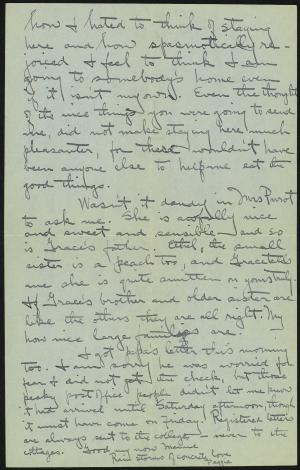 how I hated to think of staying
here and how spasmodically re-
joiced I feel to think I am
going to somebody's home even
if it isn't my own. Even the thought
of the nice things you were going to send
me, did not make staying here much
pleasanter, for there wouldn't have
been anyone else to help me eat the
good things.
Wasn't it dandy in Mrs
to ask me. She is awfully nice
and sweet and sensible and so
is Grace's father. Ethel, the small
sister is a peach too, and Grace tells
me she is quite smitten on yours truly.
If Grace's brother and older sister are
like the others they are all right. My
how nice large families are.
I got papa's letter this morning
too. I am sorry he was worried for
fear I did not get the check, but those
pesky post office people didn't let me know
it had arrived until Saturday afternoon, though
it must have come on Friday. Registered letters
are always sent to the college — never to the
cottages. Good bye now Mamma